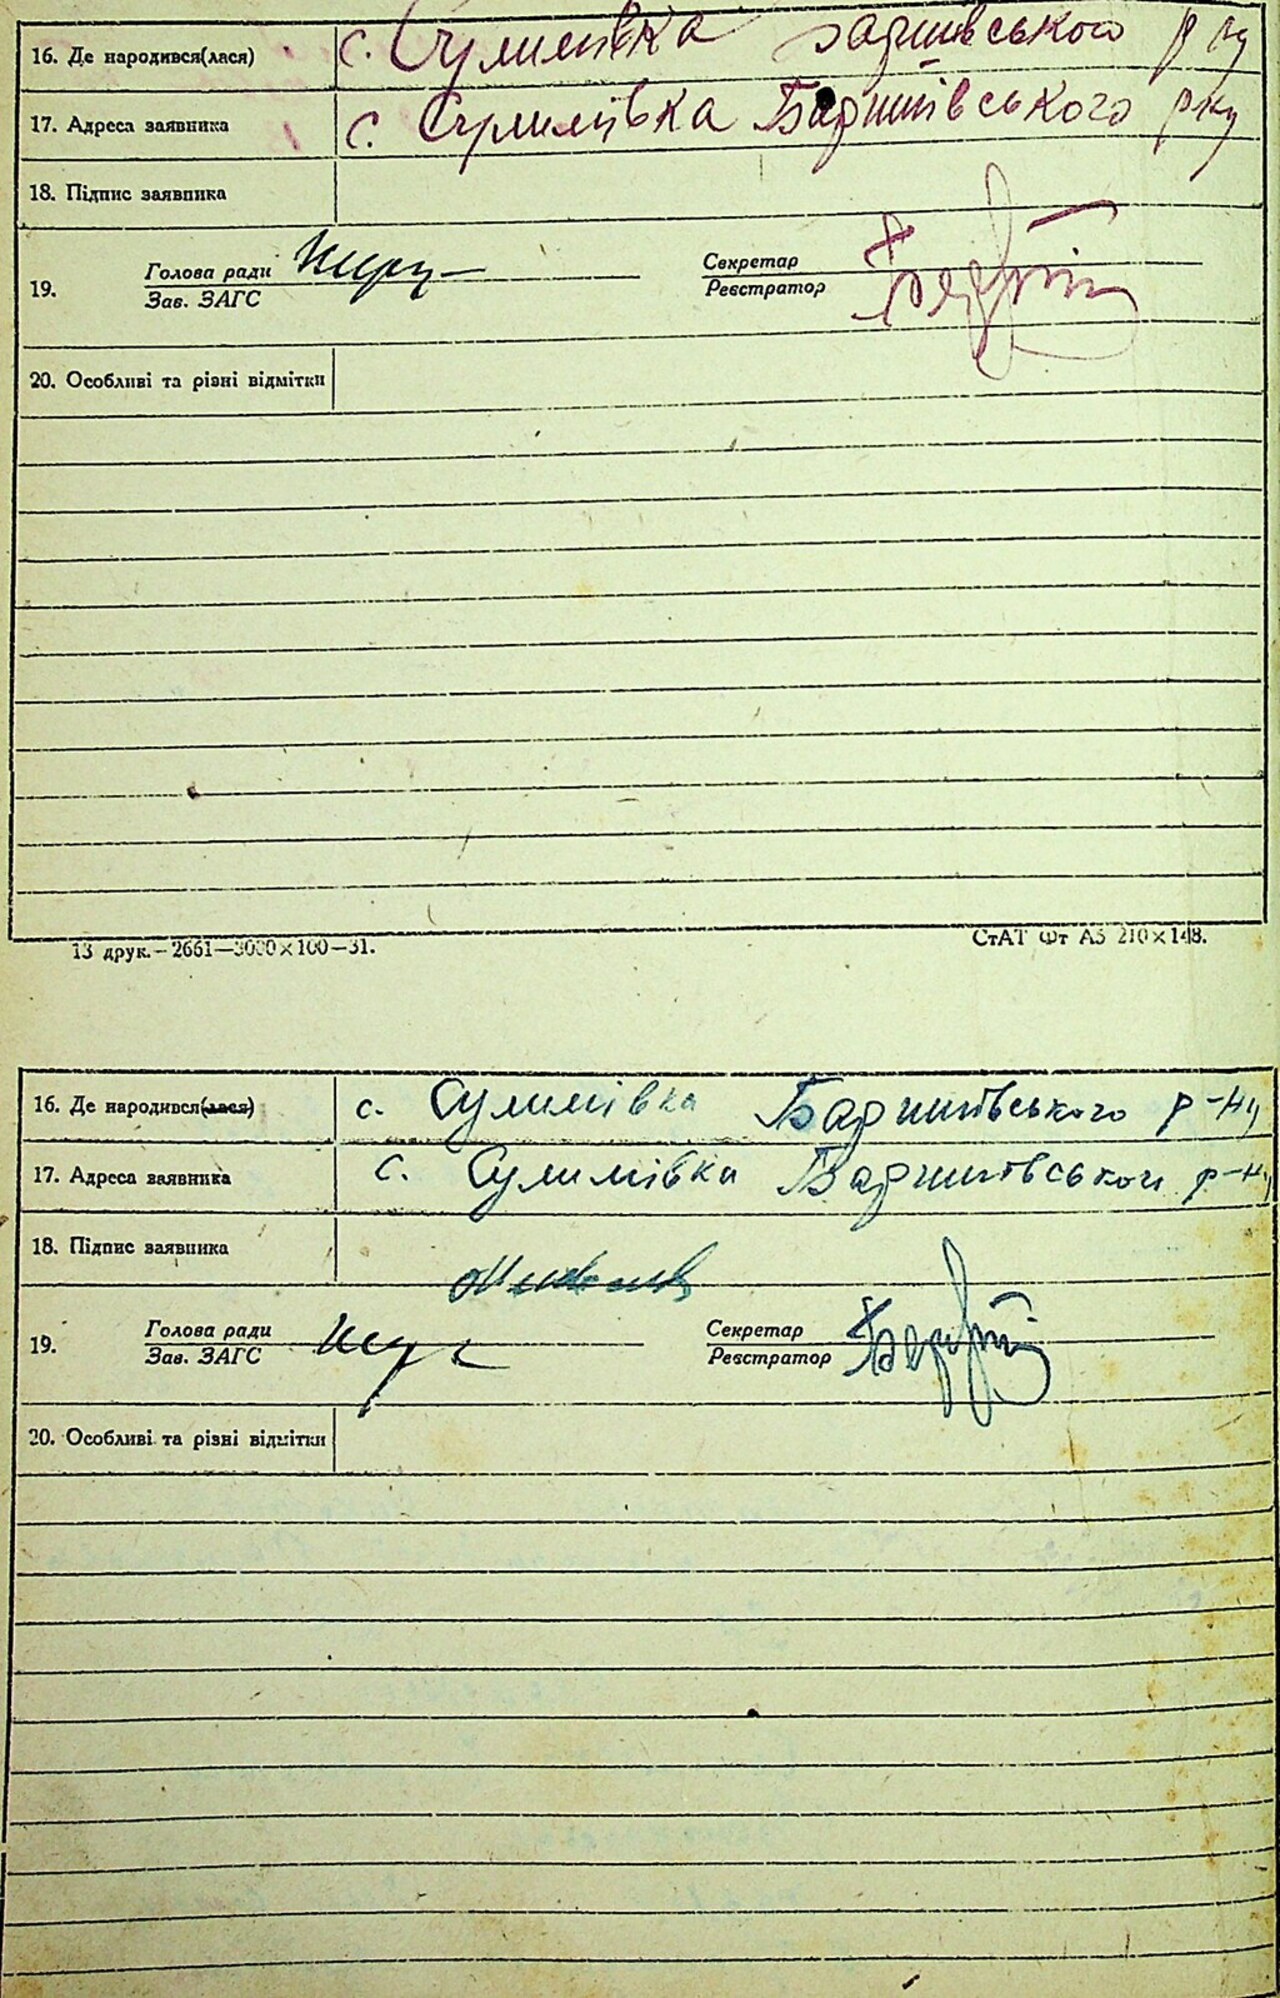 16. Де народився(лася) с. Сулимівка Баришівського р ну
17. Адреса заявника с. Сулимівка Баришівського р ну
18. Підпис заявника
Голова ради Секретар
19.
Зав. ЗАГС Реєстратор
20. Особливі та різні відмітки
13 друк.—2661—3000×100—31. СтАТ Фт А5 210×148.
16. Де народився(лася) с. Сулимівка Баришівського р-ну
17. Адреса заявника с. Сулимівка Баришівського р-ну
18. Підпис заявника
Голова ради Секретар
19.
Зав. ЗАГС Реєстратор
20. Особливі та різні відмітки